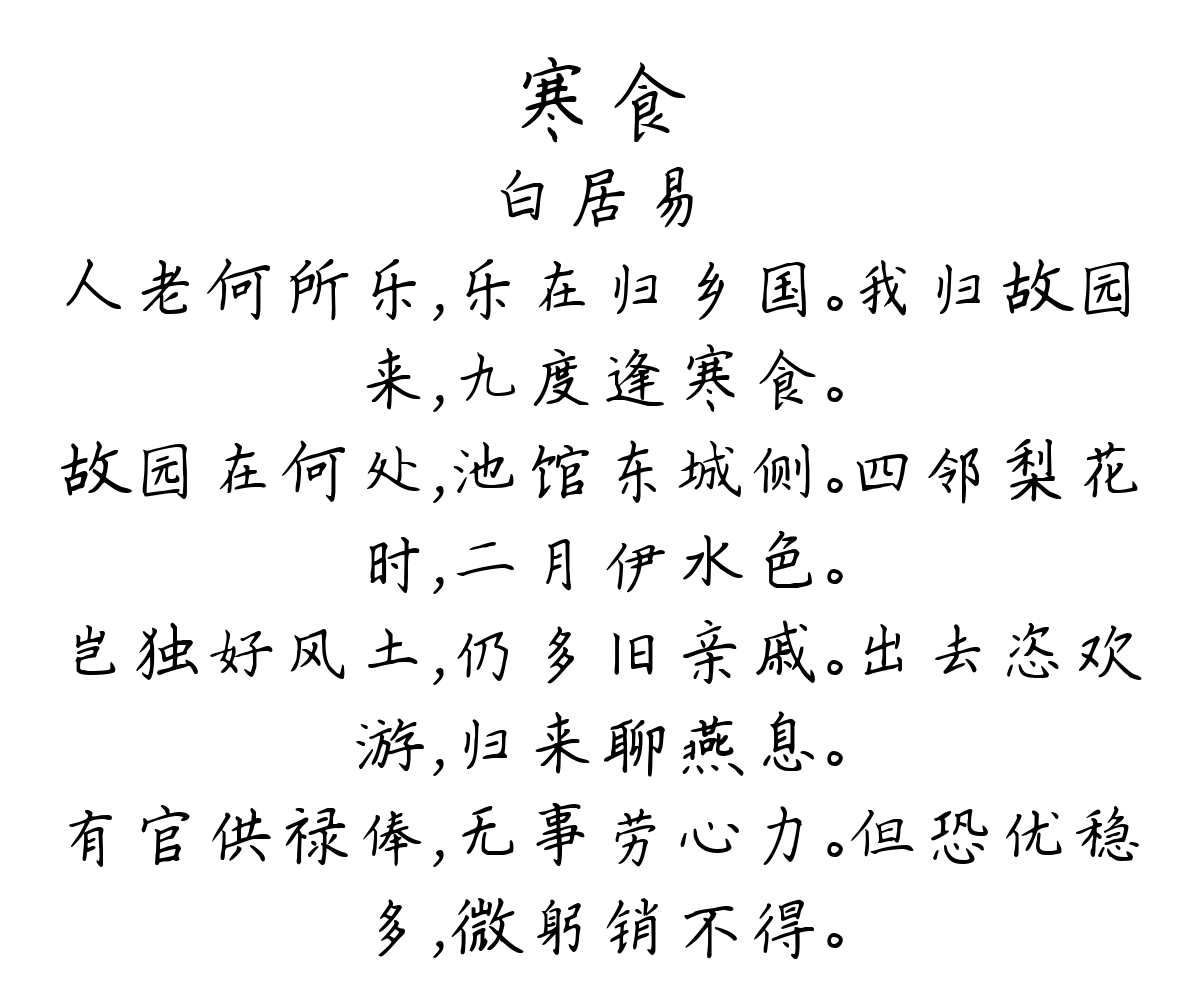 寒食
白居易
人老何所乐,乐在归乡国。我归故园
来,九度逢寒食。
故园在何处,池馆东城侧。四邻梨花
时,二月伊水色。
岂独好风土,仍多旧亲戚。出去恣欢
游,归来聊燕息。
有官供禄俸,无事劳心力。但恐优稳
多,微躬销不得。